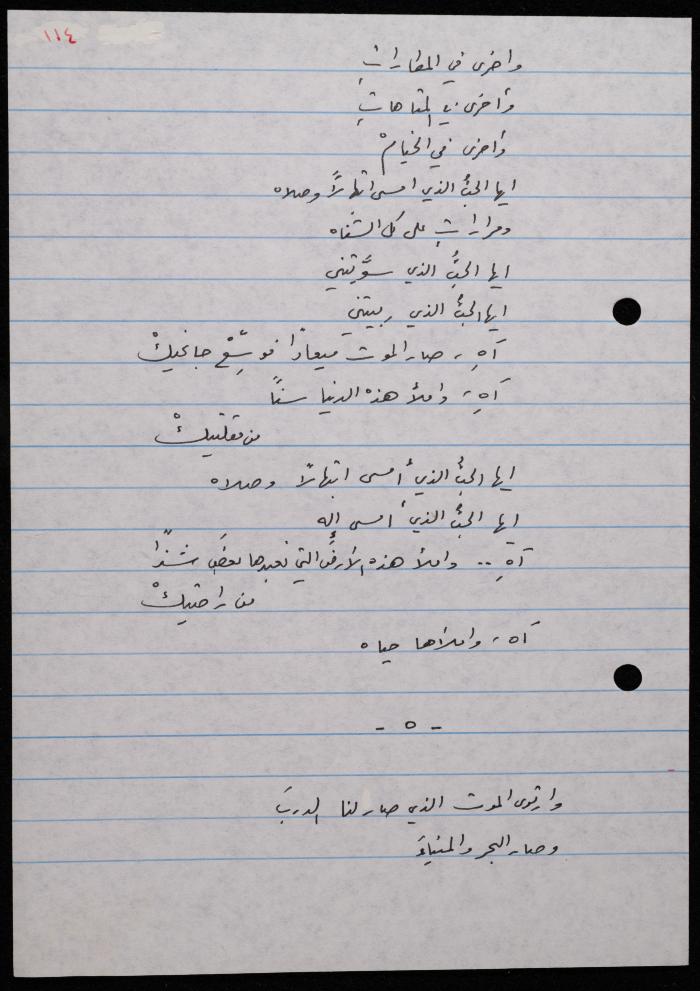 ١١٤
وأخرى في المطاراتِ
وأخرى في المتاهاتِ
وأخرى في الخيامْ
ايها الحبُّ الذي امسى ابتهالاً وصلاه
ومراراتٍ على كل الشفاه
ايها الحبُّ الذي سوَّيتني
ايها الحبُّ الذي ربيتني
آهِ ، صار الموت ميعادًا فوسِّعْ جانحيكْ
آهِ ، واملأ هذه الدنيا سنًا
من مقلتيكْ
ايها الحبُّ الذي أمسى ابتهالاً وصلاه
ايها الحبُّ الذي أمسى إله
آهِ .. واملأ هذه الأرضَ التي نعبدها بعضَ شذًا
من راحتيكْ
آه ، واملأها حياه
- ٥ -
وارتوى الموت الذي صار لنا الدربَ
وصار البحر والميناءَ